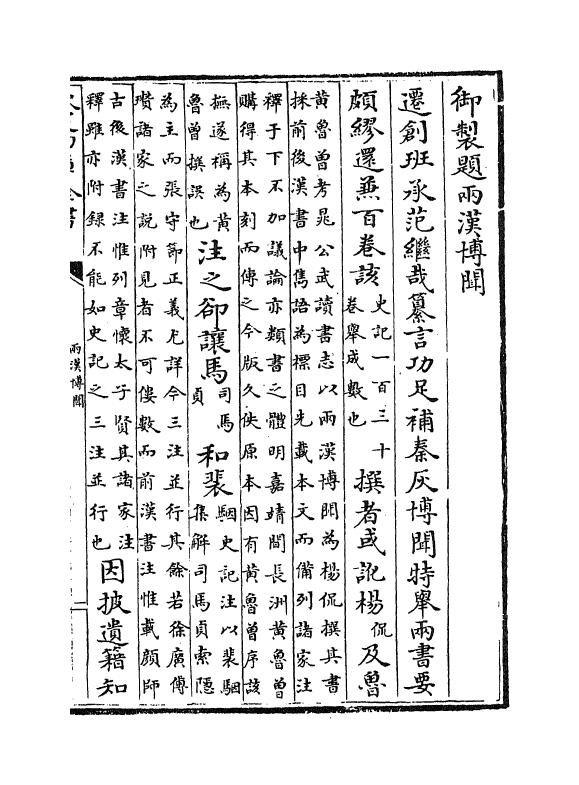 御製題兩漢博聞
遷創班承范繼哉纂言功足補秦灰博聞特舉兩書要
頗繆還兼百卷該
史記一百三十
卷舉成數也
撰者或訛楊侃及魯
黃魯曾考晁公武讀書志以兩漢博聞為楊侃撰其書
採前後漢書中雋語為標目先載本文而備列諸家注
釋于下不加議論亦類書之體明嘉靖間長洲黃魯曾
購得其本刻而傳之今版久佚原本因有黃魯曾序該
撫遂稱為黃
魯曾撰誤也
注之卻讓馬
司馬
貞
和裴
駰史記注以裴駰
集解司馬貞索隱
為主而張守節正義尤詳今三注並行其餘若徐廣傅
瓚諸家之說附見者不可僂數而前漢書注惟載顏師
古後漢書注惟列章懷太子賢其諸家注
釋雖亦附録不能如史記之三注並行也
因披遺籍知
兩漢博聞